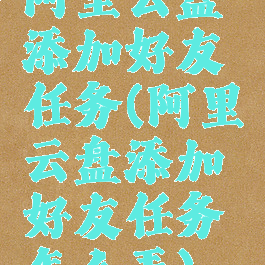 阿里云盘
添加好友
任务(阿里
云盘添加
好友任务
怎么弄)